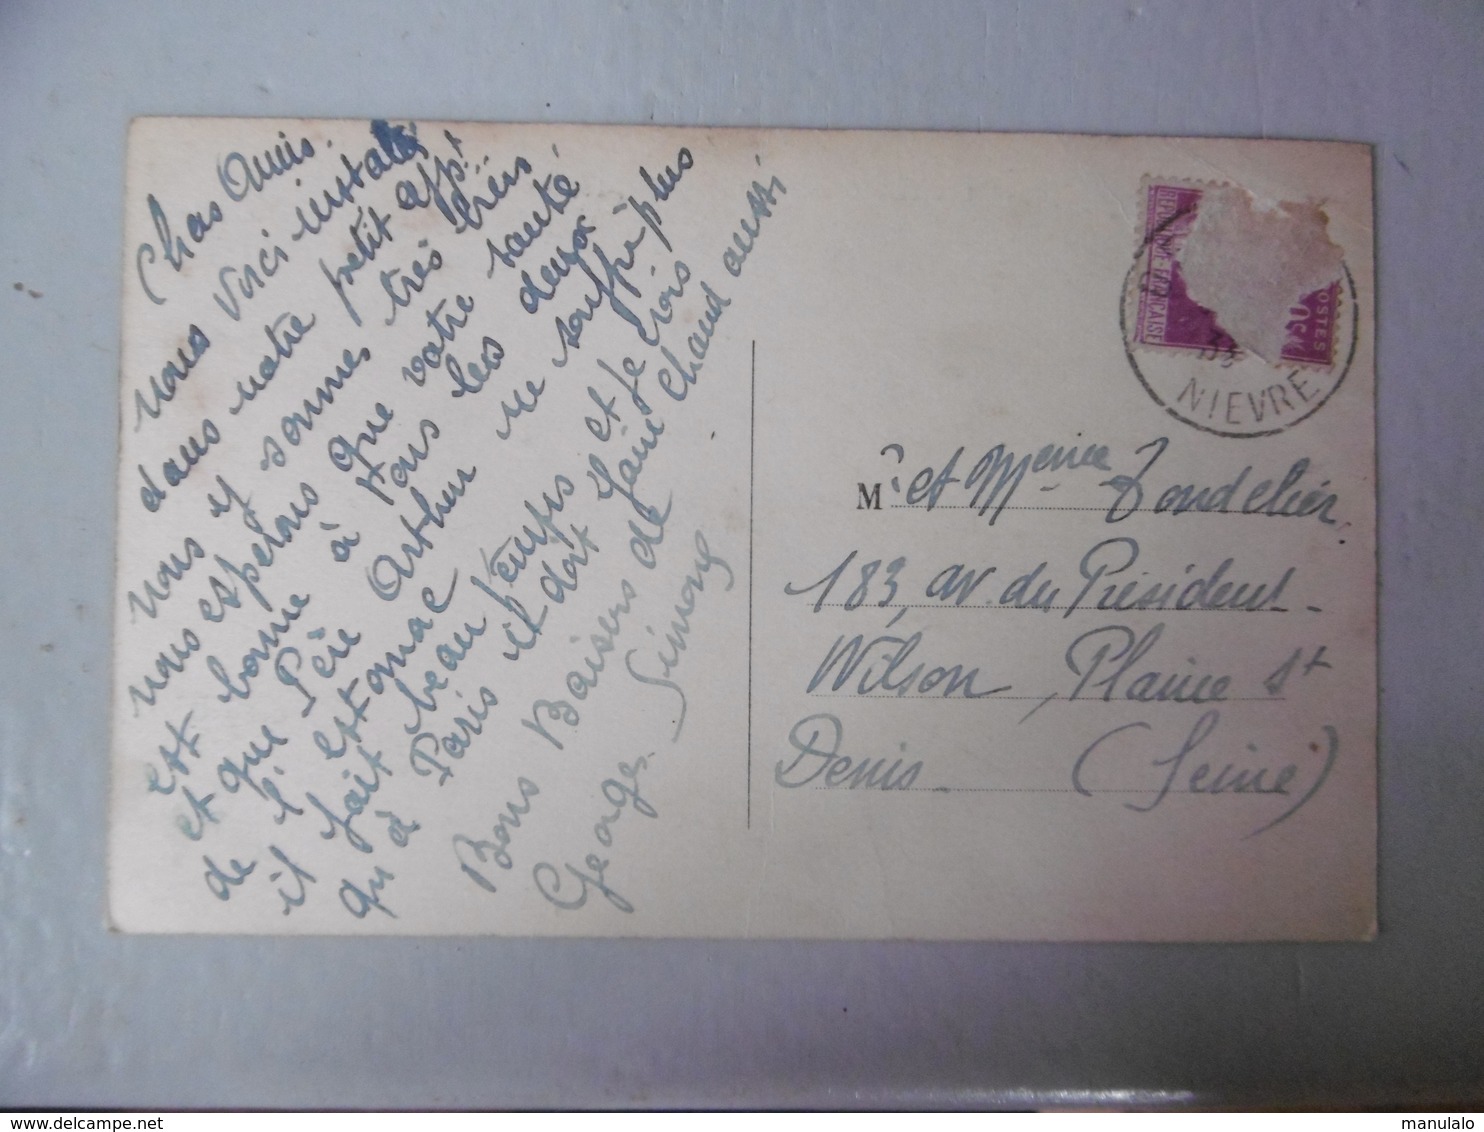 Chers Amis.
nous voici installés
dans notre petit appt.
nous y sommes très bien
nous espérons que votre santé
est bonne à tous les deux
et que Père Arthur ne souffre plus
de l'estomac
il fait beau temps et je crois
qu'à Paris il doit faire chaud aussi
Bons Baisers de
Georges Simone
REPUBLIQUE FRANCAISE
POSTES
NIEVRE
M r et Mme Tondelier
183, av. du Président
Wilson, Plaine St
Denis (Seine)
© delcampe.net
manulalo